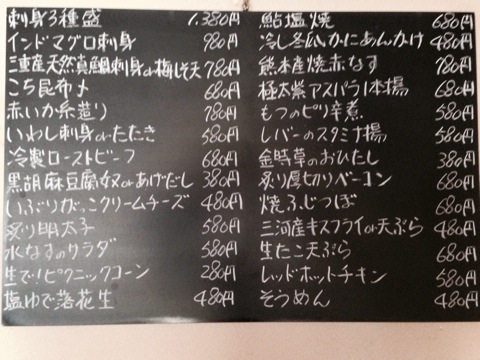 刺身3種盛 1.380円
インドマグロ刺身 980円
三重産天然真鯛刺身or梅しそ天 780円
こち昆布〆 680円
赤いか糸造り 780円
いわし刺身orたたき 580円
冷製ローストビーフ 680円
黒胡麻豆腐奴orあげだし 380円
いぶりがっこクリームチーズ 480円
炙り明太子 580円
水なすのサラダ 580円
生で!ピクニックコーン 280円
塩ゆで落花生 480円
鮎塩焼 680円
冷し冬瓜かにあんかけ 480円
熊本産焼赤なす 780円
極太紫アスパラ1本揚 680円
もつのピリ辛煮 580円
レバーのスタミナ揚 580円
金時草のおひたし 380円
炙り厚切りベーコン 680円
焼ふじつぼ 680円
三河産キスフライor天ぷら 480円
生たこ天ぷら 680円
レッドホットチキン 580円
そうめん 480円